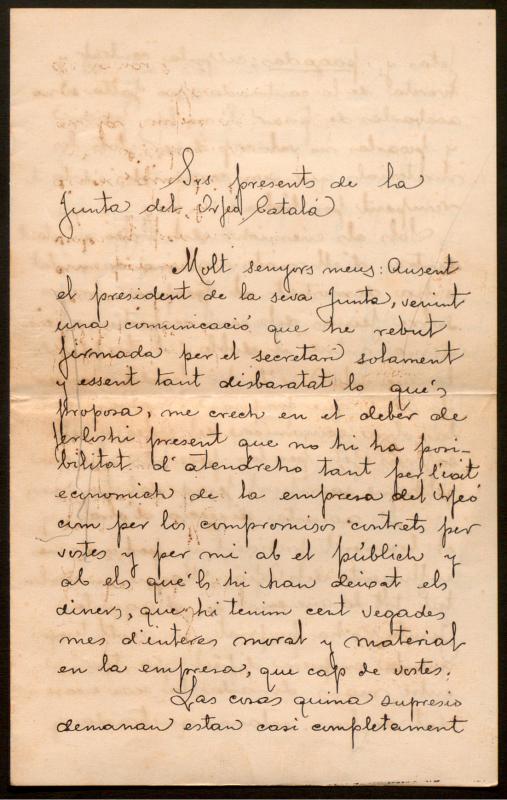 Srs presents de la
Junta del Orfeó Catalá
Molt senyors meus: Ausent
el president de la seva Junta, venint
una comunicació que he rebut
firmada per el secretari solament
y essent tant disbaratat lo qué's
proposa, me crech en el deber de
ferlishi present que no hi ha posi-
bilitat d'atendreho tant per l'éxit
economich de la empresa del Orfeó
com per los compromisos contrets per
vostes y per mi ab el públich y
ab els qué'ls hi han deixat els
diners, que hi tenim cent vegades
mes d'interes moral y material
en la empresa, que cap de vostes.
Las cosas quina supresio
demanan estan casi completament